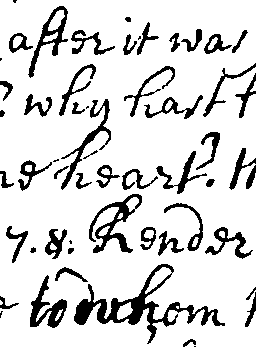 after it was
? why hast t
he heart? th
7. 8: Render
to whom